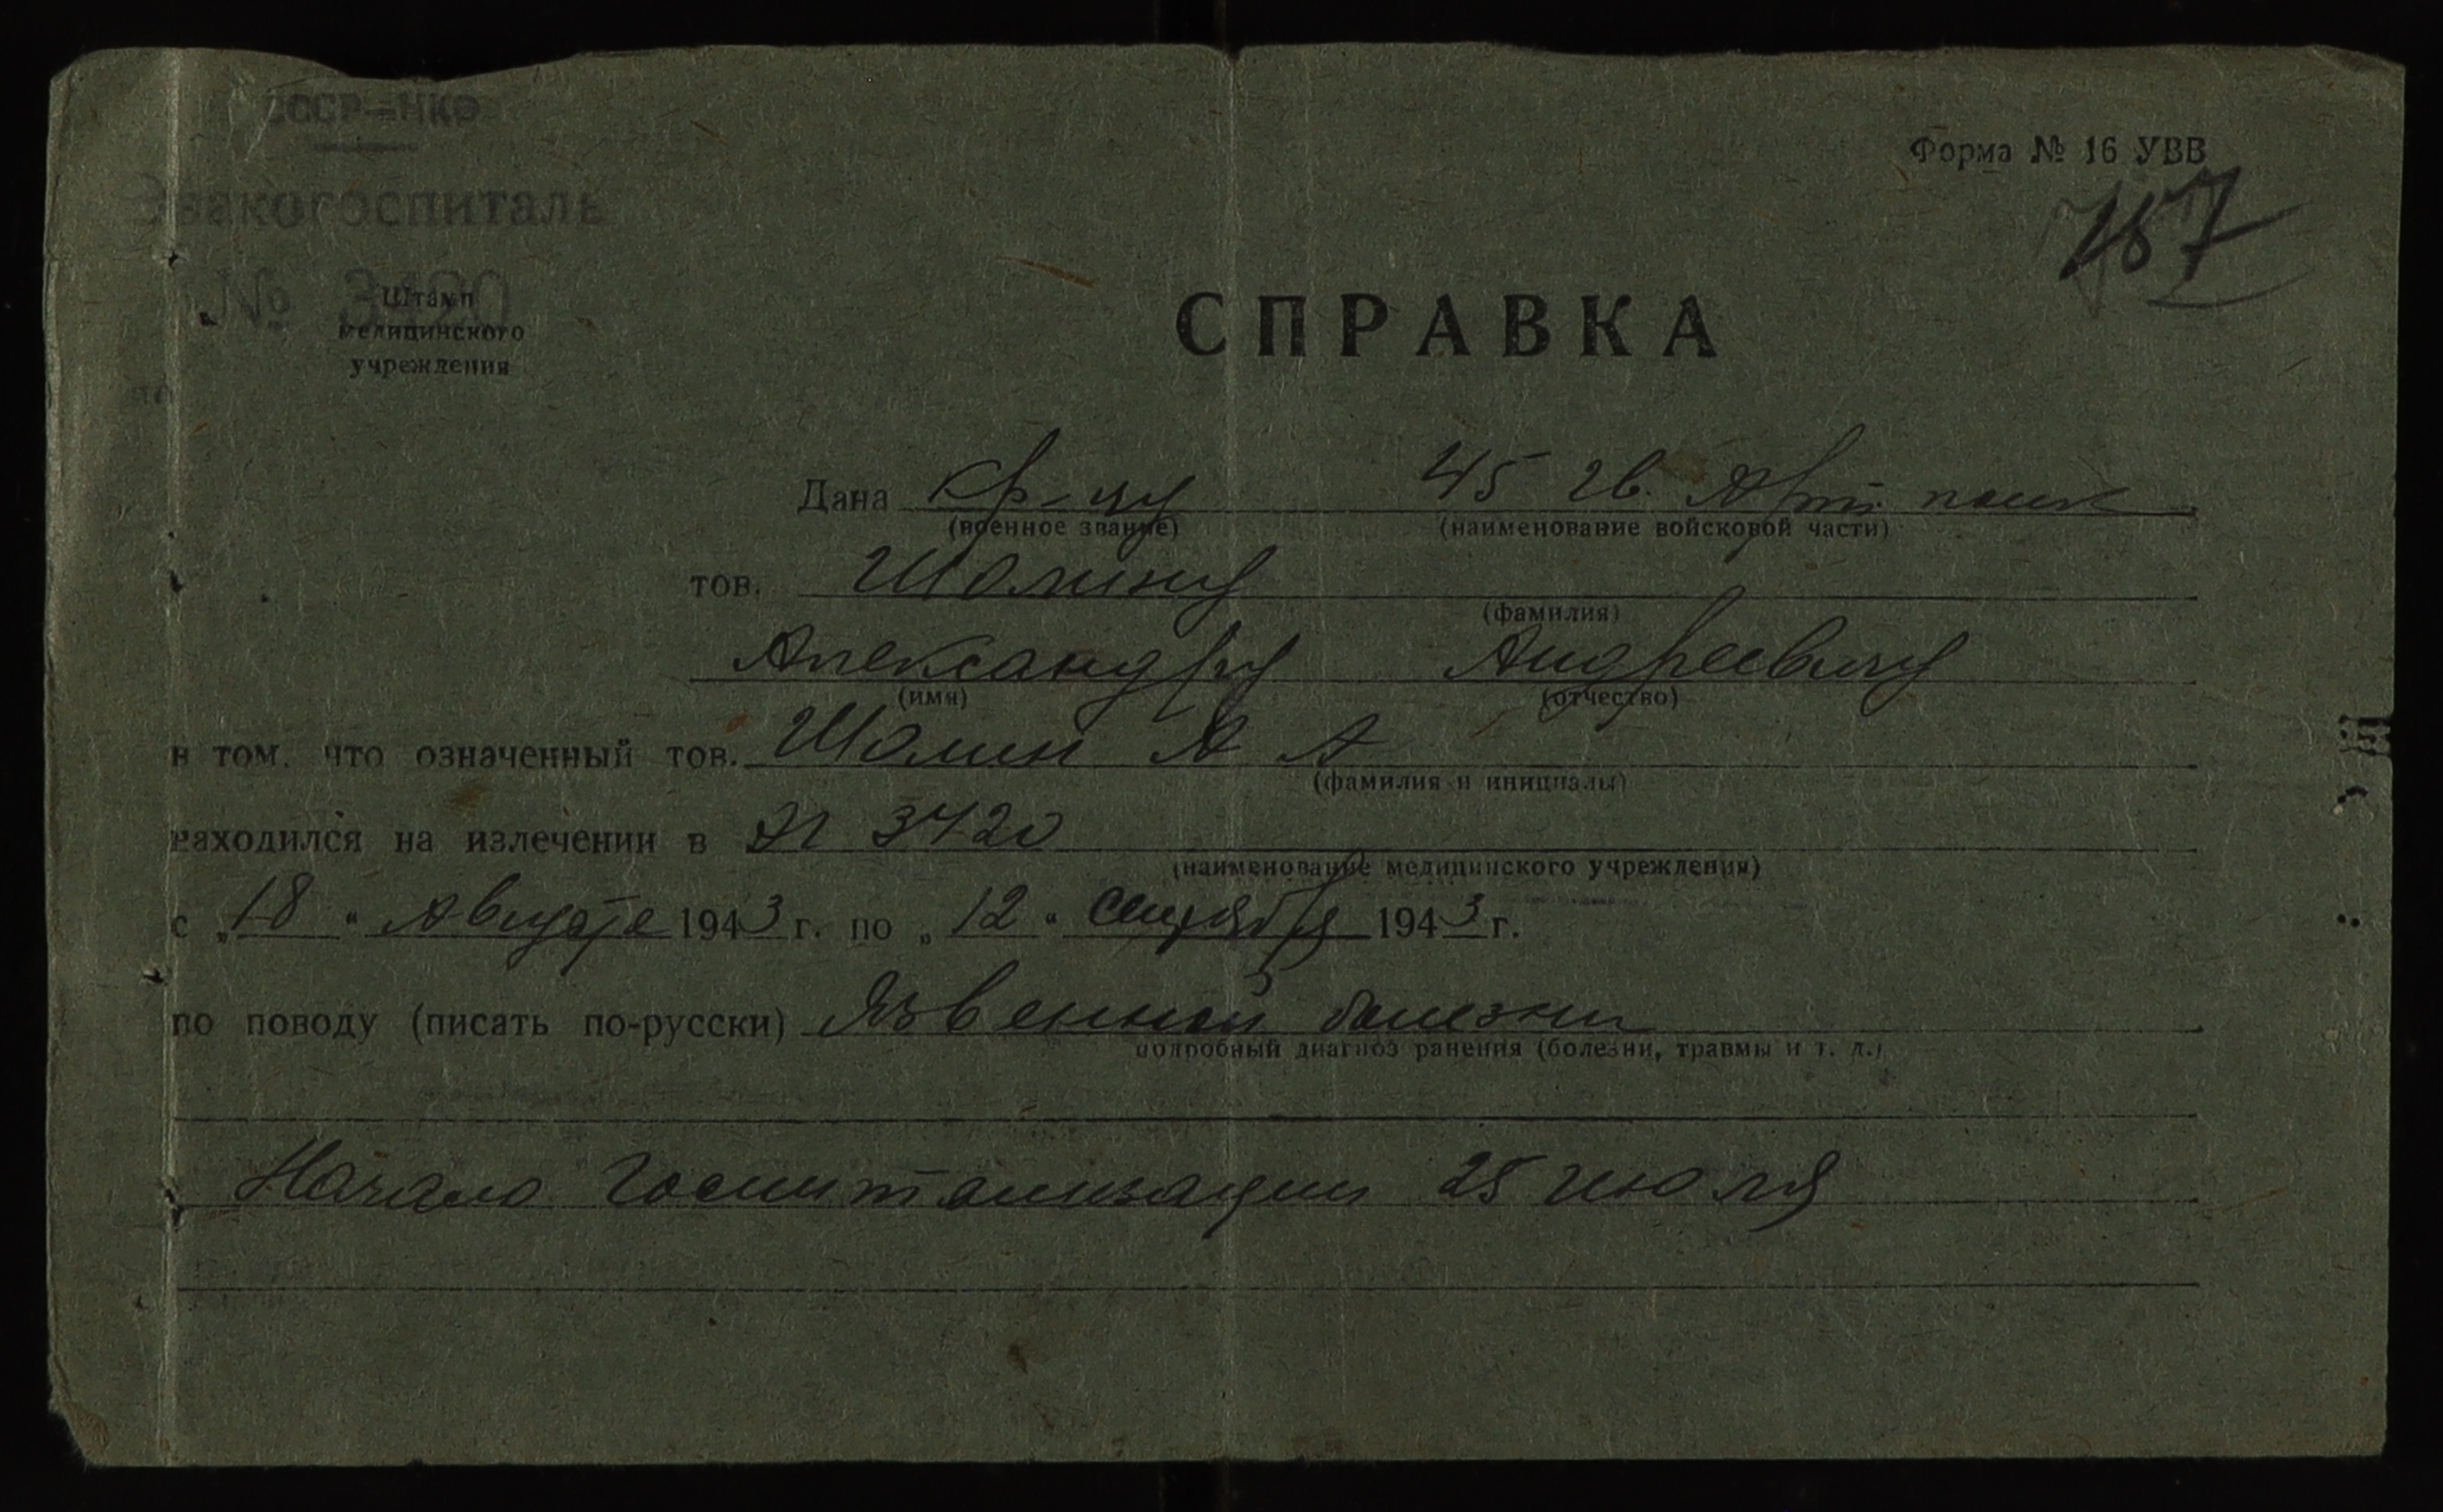 СССР–НКО
Эвакогоспиталь
№ 3420
Штамп
медицинского
учреждения
Форма № 16 УВВ
СПРАВКА
Дана кр-цу 45 гв. Арт полк
(военное звание) (наименование войсковой части)
тов. Шолину
(фамилия)
Александру Андреевичу
(имя) (отчество)
в том, что означенный тов. Шолин А А
(фамилия и инициалы)
находился на излечении в ЭГ 3420
(наименование медицинского учреждения)
с „18“ Августа 1943 г. по „12“ сентября 1943 г.
по поводу (писать по-русски) Язвенной болезни
подробный диагноз ранения (болезни, травмы и т. д.)
Начало Госпитализации 25 июля